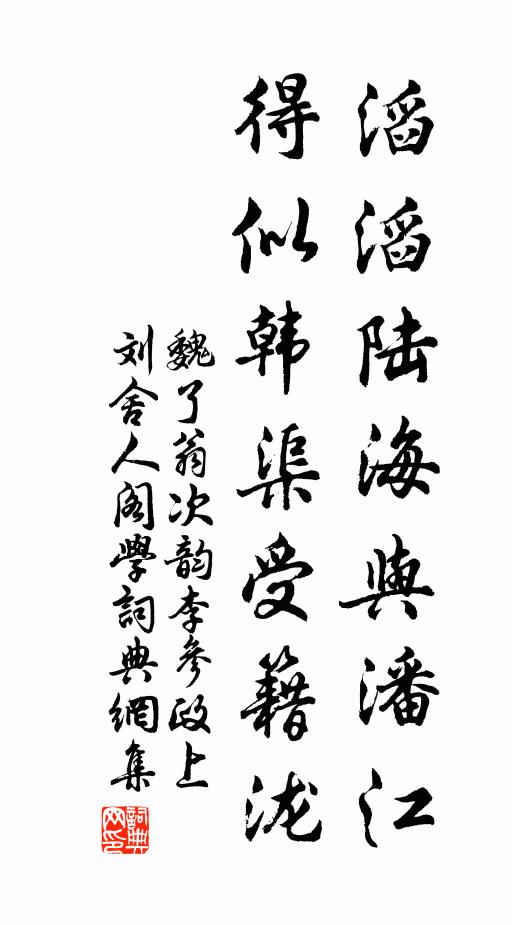 滔滔陆海與潘江
得似韩渠受籍泷
魏了翁次韵李参政上
刘舍人阁學詞典網集
詞典网印